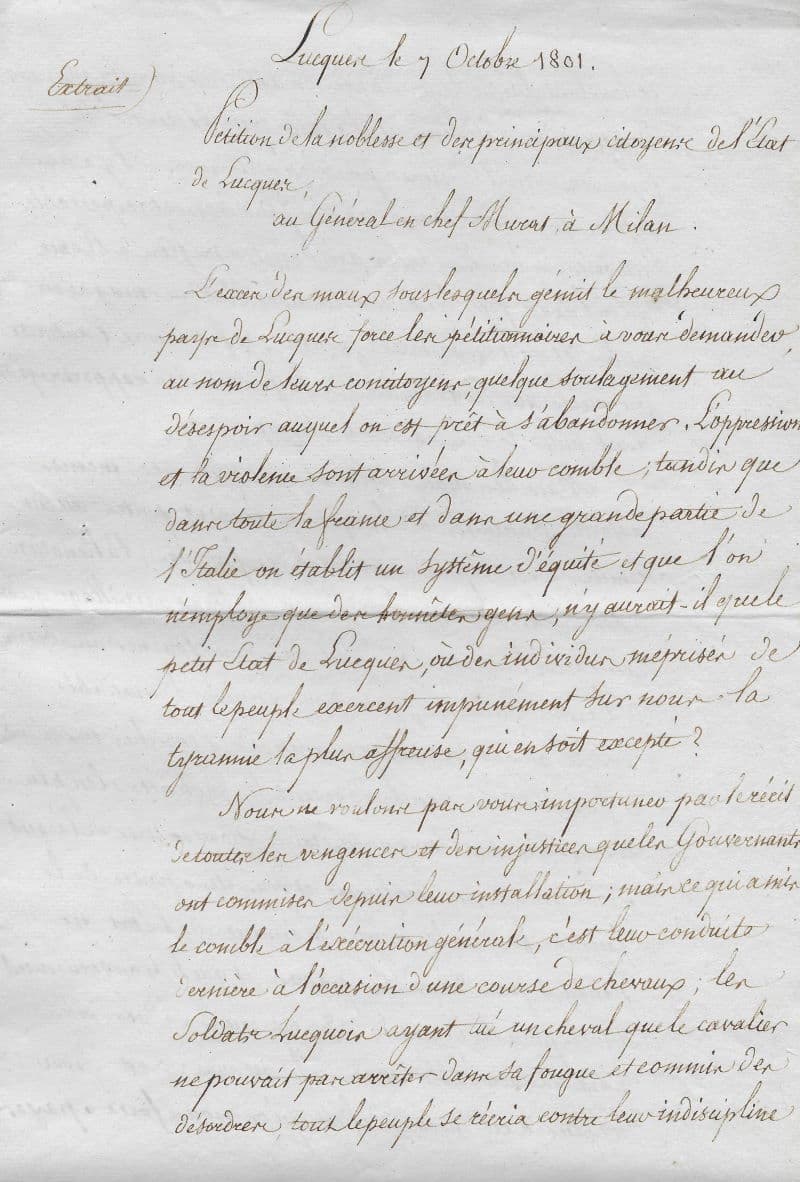 Lucques le 7 Octobre 1801.
Extrait
Pétition de la noblesse et des principaux citoyens de l'État
de Lucques,
au Général en chef Murat, à Milan.
L'excès des maux sous lesquels gémit le malheureux
pays de Lucques force les pétitionnaires à vous demander,
au nom de leurs concitoyens, quelque soulagement au
désespoir auquel on est prêt à s'abandonner. L'oppression
et la violence sont arrivées à leur comble; tandis que
dans toute la france et dans une grande partie de
l'Italie on établit un système d'équité et que l'on
n'employe que des honnêtes gens, n'y aurait-il que le
petit État de Lucques, où des individus méprisés de
tout le peuple exercent impunément sur nous la
tyrannie la plus affreuse, qui en soit excepté?
Nous ne voulons pas vous importuner par le récit
de toutes les vengences et des injustices que les Gouvernants
ont commises depuis leur installation; mais ce qui a mis
le comble à l'exécration générale, c'est leur conduite
dernière à l'occasion d'une course de chevaux; les
Soldats Lucquois ayant tué un cheval que le cavalier
ne pouvait pas arrêter dans sa fougue et commis des
désordres, tout le peuple se récria contre leur indiscipline